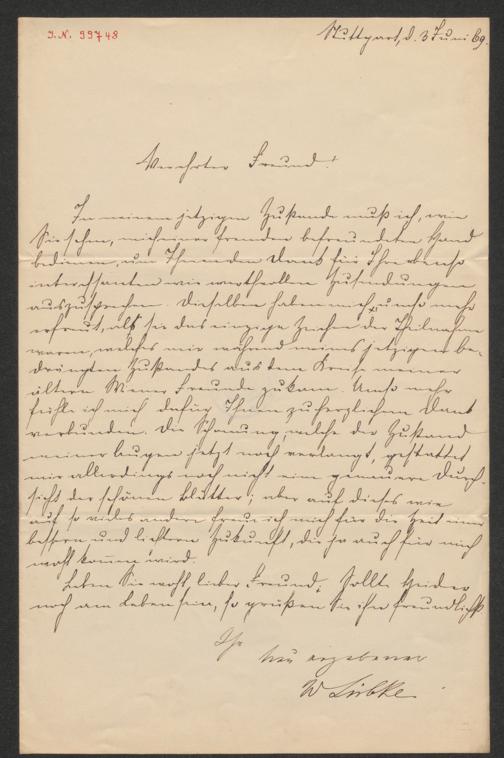 J.N. 99748
Stuttgart, d. 3 Juni 69.
Verehrter Freund!
In meinem jetzigen Zustande muß ich, wie
Sie sehen, mich einer fremden befreundeten Hand
bedienen, um Ihnen den Dank für Ihre ebenso
interessanten wie werthvollen Zusendungen
auszusprechen. Dieselben haben mich umso mehr
erfreut, als sie das einzige Zeichen der Theilnahme
waren, welches mir während meines jetzigen be-
drängten Zustandes aus dem Kreise meiner
ältern Wiener Freunde zukam. Umso mehr
fühle ich mich dafür Ihnen zu herzlichem Dank
verbunden. Die Schonung, welche der Zustand
meiner Augen jetzt noch verlangt, gestattet
mir allerdings noch nicht eine genauere Durch-
sicht der schönen Blätter; aber auf dieses wie
auf so vieles andere freue ich mich für die Zeit einer
bessern und lichtern Zukunft, die ja auch für mich
wohl kommen wird.
Leben Sie wohl lieber Freund, sollte Heider
noch am Leben sein, so grüßen Sie ihn freundlichst
Ihr
treu ergebener
W Lübke.